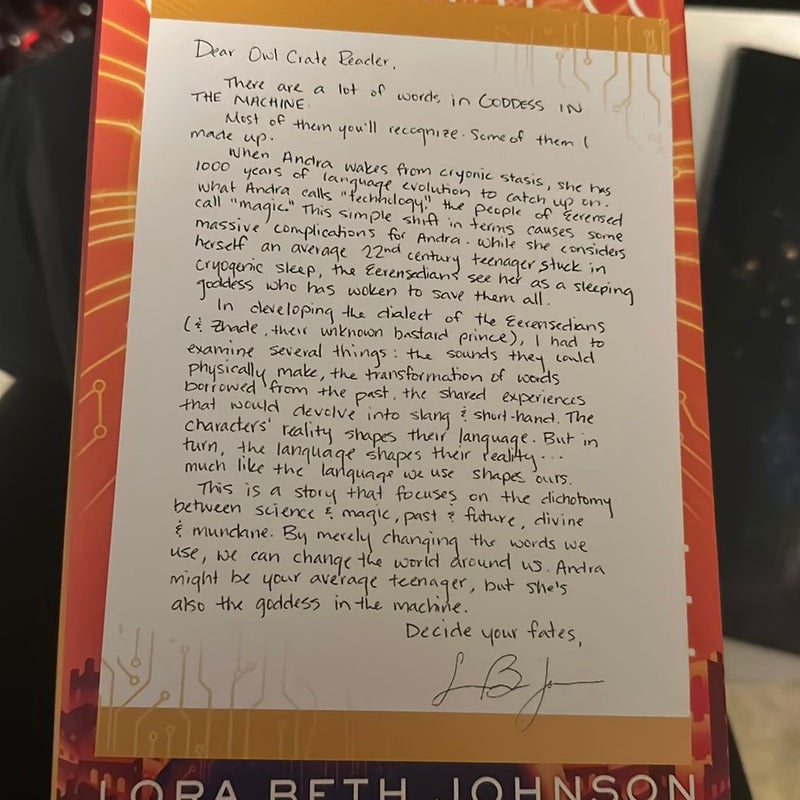 Dear Owl Crate Reader,
There are a lot of words in GODDESS IN
THE MACHINE.
Most of them you'll recognize. Some of them I
made up.
When Andra wakes from cryonic stasis, she has
1000 years of language evolution to catch up on.
what Andra calls "technology" the people of Eerensed
call "magic." This simple shift in terms causes some
massive complications for Andra. While she considers
herself an average 22nd century teenager stuck in
cryogenic sleep, the Eerensedians see her as a sleeping
goddess who has woken to save them all.
In developing the dialect of the Eerensedians
(& Zhade, their unknown bastard prince), I had to
examine several things: the sounds they could
physically make, the transformation of words
borrowed from the past, the shared experiences
that would devolve into slang & short-hand. The
characters' reality shapes their language. But in
turn, the language shapes their reality...
much like the language we use shapes ours.
This is a story that focuses on the dichotomy
between science & magic, past & future, divine
& mundane. By merely changing the words we
use, we can change the world around us. Andra
might be your average teenager, but she's
also the goddess in the machine.
Decide your fates,
LORA BETH JOHNSON